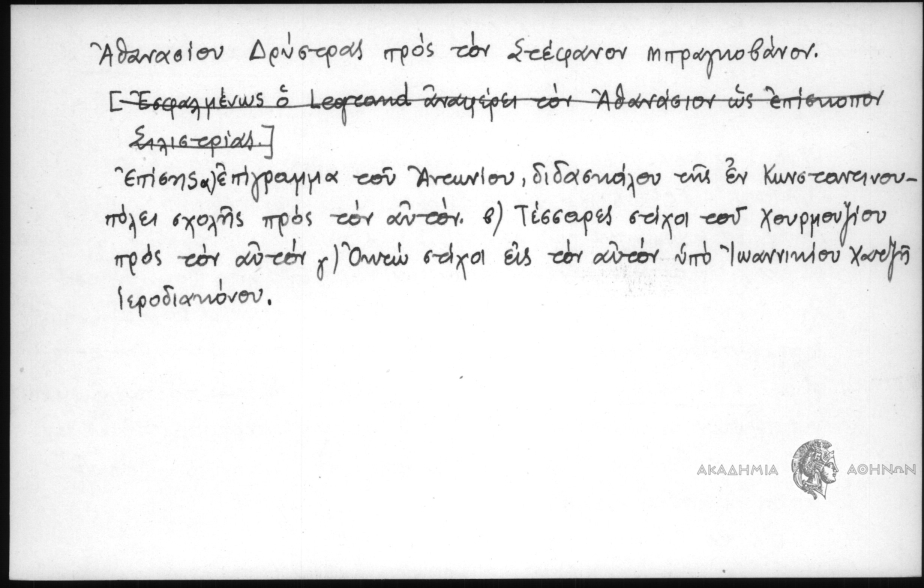 Ἀθανασίου Δρύστρας πρὸς τὸν Στέφανον Μπραγκοβάνον.
[Ἐσφαλμένως ὁ Legrand ἀναφέρει τὸν Ἀθανάσιον ὡς ἐπίσκοπον
Σιλιστρίας.]
Ἐπίσης α) ἐπίγραμμα τοῦ Ἀντωνίου, διδασκάλου τῆς ἐν Κωνσταντινου-
πόλει σχολῆς πρὸς τὸν αὐτόν. β) Τέσσαρες στίχοι τοῦ Χουρμουζίου
πρὸς τὸν αὐτὸν γ) Ὀκτὼ στίχοι εἰς τὸν αὐτὸν ὑπὸ Ἰωαννικίου Χατζῆ
Ἱεροδιακόνου.
ΑΚΑΔΗΜΙΑ ΑΘΗΝΩΝ